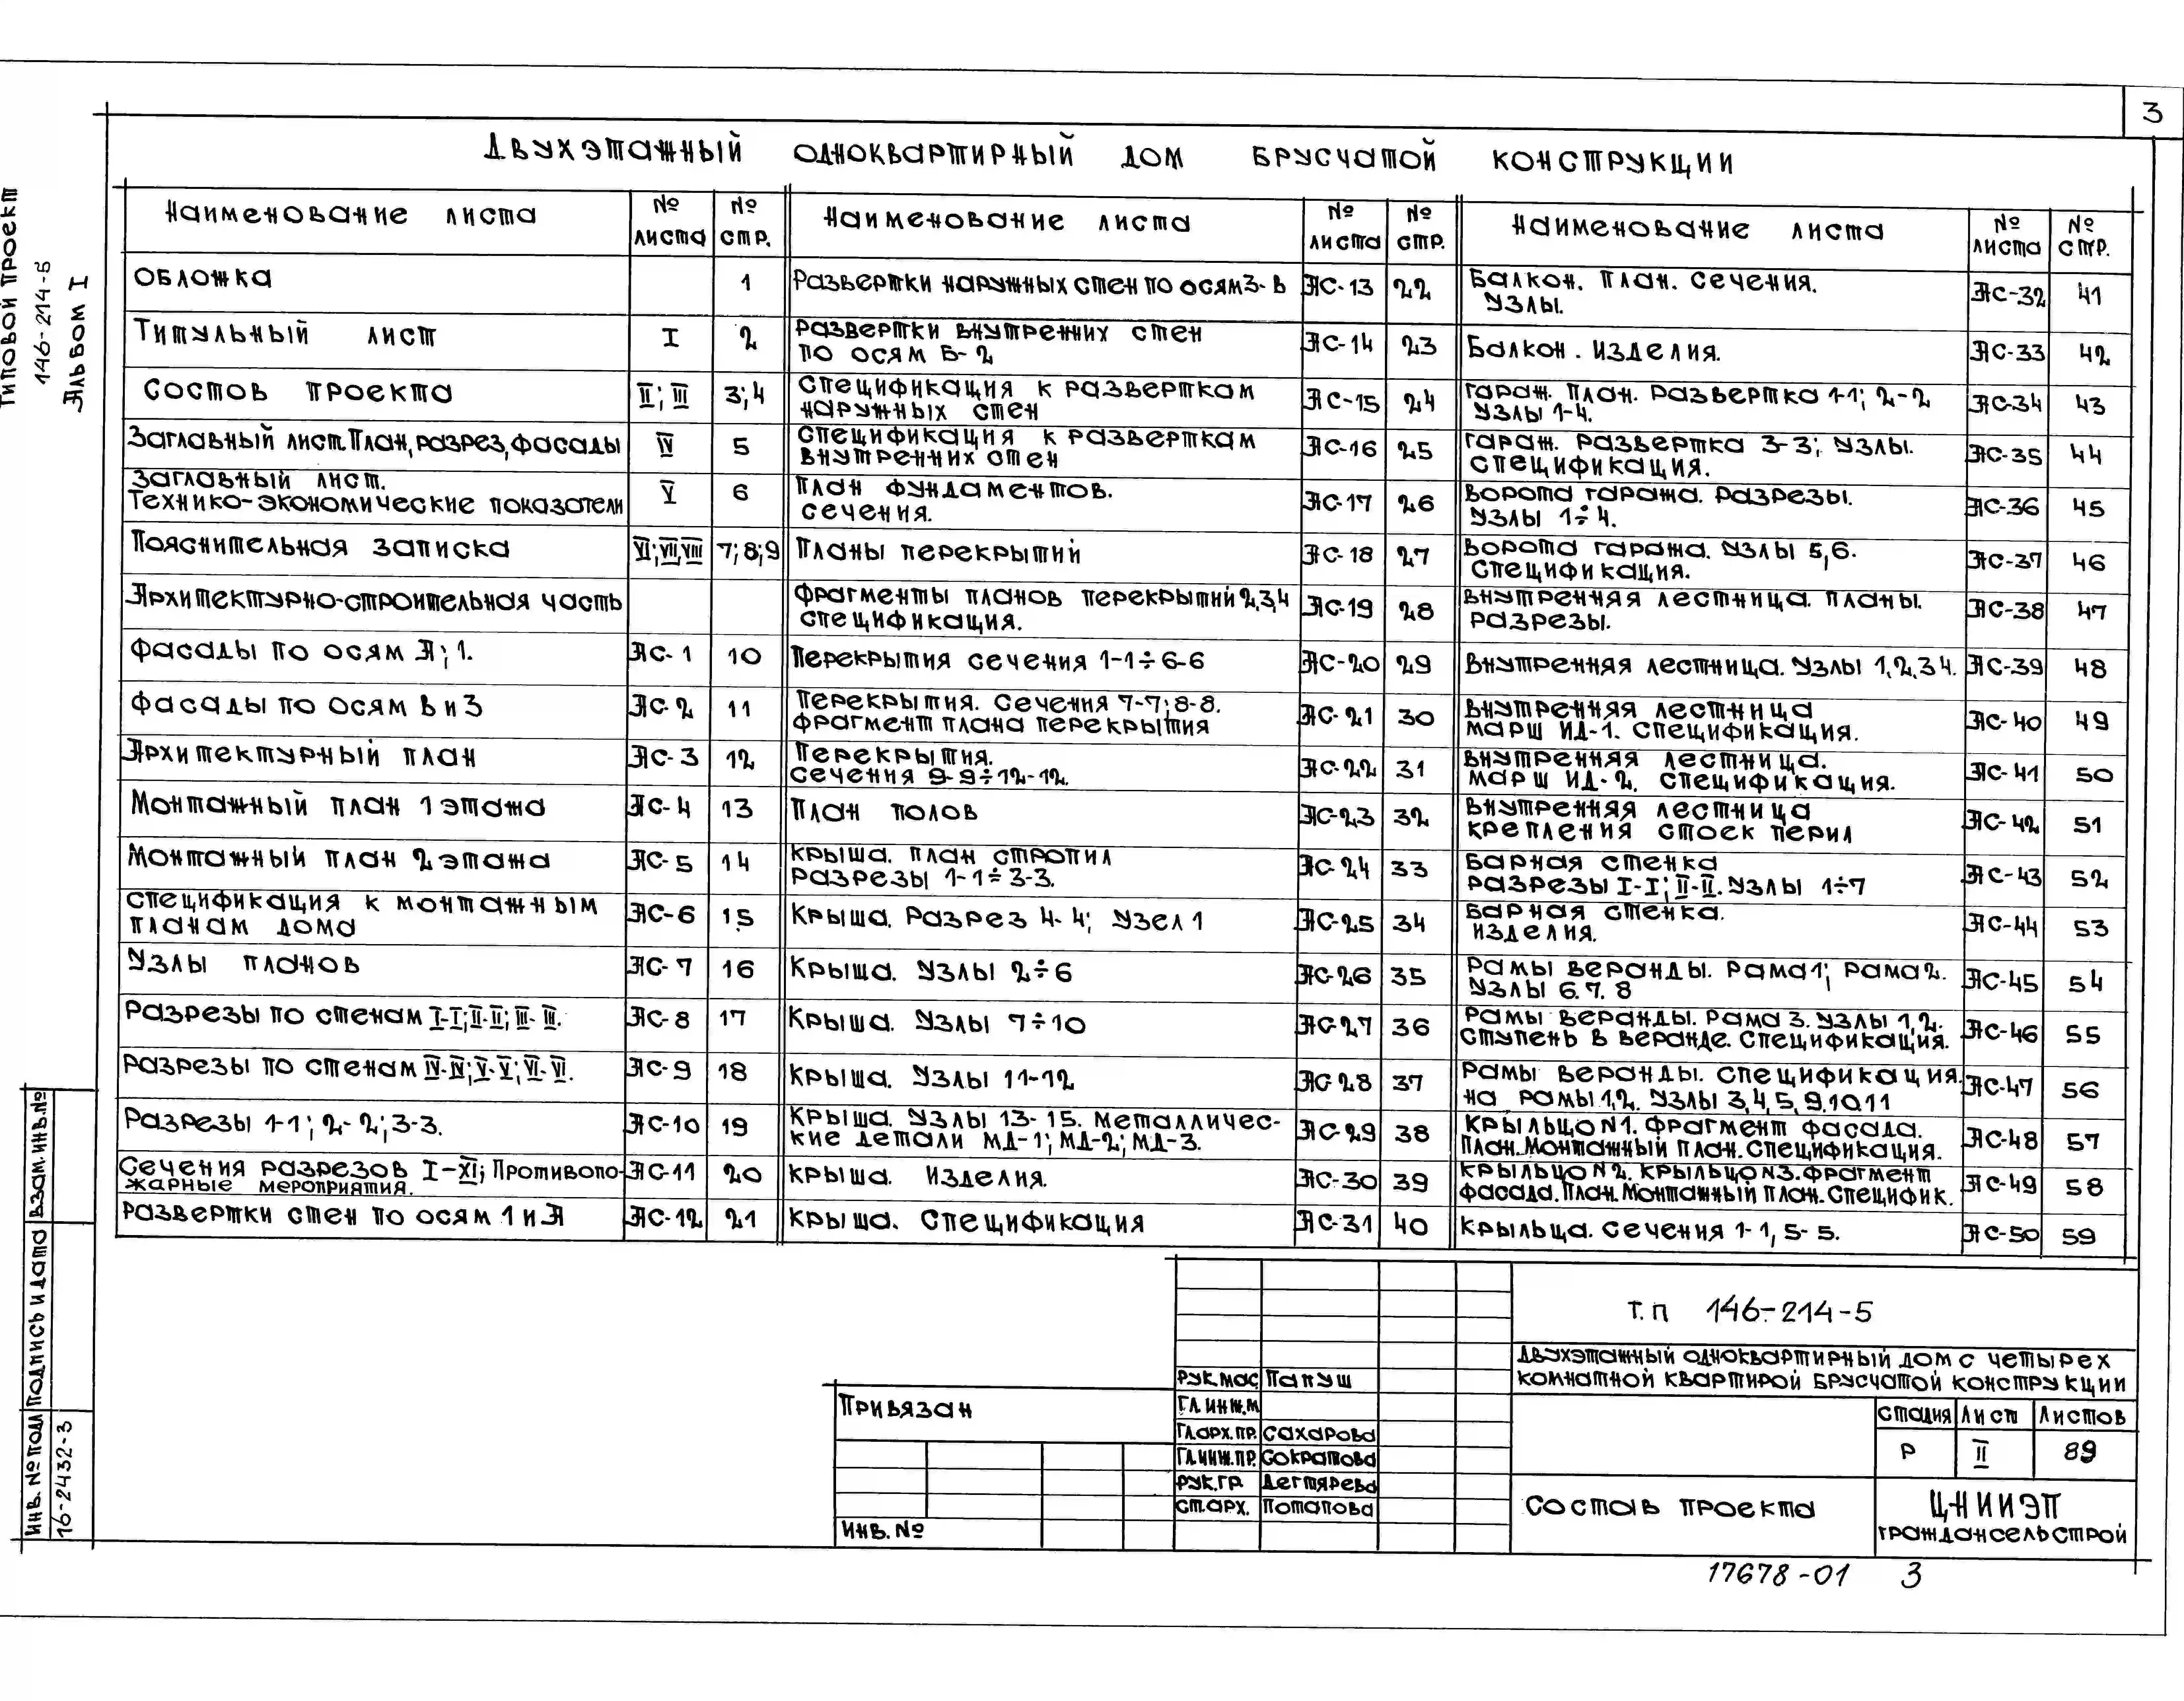 3
ДВУХЭТАЖНЫЙ ОДНОКВАРТИРНЫЙ ДОМ БРУСЧАТОЙ КОНСТРУКЦИИ
ТИПОВОЙ ПРОЕКТ
146-214-5
АЛЬБОМ I
Наименование листа № листа № стр.
Обложка 1
Титульный лист I 2
Состов проекта II; III 3;4
Заглавный лист. План, разрез, фасады IV 5
Заглавный лист.
Технико-экономические показатели V 6
Пояснительная записка VI; VII, VIII 7;8;9
Архитектурно-строительная часть
Фасады по осям А; 1. АС-1 10
Фасады по осям В и 3 АС-2 11
Архитектурный план АС-3 12
Монтажный план 1 этажа АС-4 13
Монтажный план 2 этажа АС-5 14
Спецификация к монтажным
планам дома АС-6 15
Узлы планов АС-7 16
Разрезы по стенам I-I; II-II; III-III. АС-8 17
Разрезы по стенам IV-IV; V-V; VI-VI. АС-9 18
Разрезы 1-1; 2-2; 3-3. АС-10 19
Сечения разрезов I-XI; Противопо-
жарные мероприятия. АС-11 20
Развертки стен по осям 1 и А АС-12 21
Наименование листа № листа № стр.
Развертки наружных стен по осям 3-В АС-13 22
Развертки внутренних стен
по осям Б-2 АС-14 23
Спецификация к разверткам
наружных стен АС-15 24
Спецификация к разверткам
внутренних стен АС-16 25
План фундаментов.
Сечения. АС-17 26
Планы перекрытий АС-18 27
Фрагменты планов перекрытий 2,3,4
Спецификация. АС-19 28
Перекрытия сечения 1-1÷6-6 АС-20 29
Перекрытия. Сечения 7-7; 8-8.
Фрагмент плана перекрытия АС-21 30
Перекрытия.
Сечения 9-9÷12-12. АС-22 31
План полов АС-23 32
Крыша. План стропил
Разрезы 1-1÷3-3. АС-24 33
Крыша. Разрез 4-4; Узел 1 АС-25 34
Крыша. Узлы 2÷6 АС-26 35
Крыша. Узлы 7÷10 АС-27 36
Крыша. Узлы 11-12 АС-28 37
Крыша. Узлы 13-15. Металличес-
кие детали МД-1; МД-2; МД-3. АС-29 38
Крыша. Изделия. АС-30 39
Крыша. Спецификация АС-31 40
Наименование листа № листа № стр.
Балкон. План. Сечения.
Узлы. АС-32 41
Балкон. Изделия. АС-33 42
Гараж. План. Развертка 1-1; 2-2
Узлы 1-4. АС-34 43
Гараж. Развертка 3-3; Узлы.
Спецификация. АС-35 44
Ворота гаража. Разрезы.
Узлы 1÷4. АС-36 45
Ворота гаража. Узлы 5,6.
Спецификация. АС-37 46
Внутренняя лестница. Планы.
Разрезы. АС-38 47
Внутренняя лестница. Узлы 1,2,3 4. АС-39 48
Внутренняя лестница
Марш ИД-1. Спецификация. АС-40 49
Внутренняя лестница.
Марш ИД-2. Спецификация. АС-41 50
Внутренняя лестница
крепления стоек перил АС-42 51
Барная стенка
Разрезы I-I; II-II. Узлы 1÷7 АС-43 52
Барная стенка.
Изделия. АС-44 53
Рамы веранды. Рама 1; Рама 2.
Узлы 6.7.8 АС-45 54
Рамы веранды. Рама 3. Узлы 1,2.
Ступень в веранде. Спецификация. АС-46 55
Рамы веранды. Спецификация.
на рамы 1,2. Узлы 3,4,5,9.10.11 АС-47 56
Крыльцо N1. Фрагмент фасада.
План. Монтажный план. Спецификация. АС-48 57
Крыльцо N2. Крыльцо N3. Фрагмент
фасада. План. Монтажный план. Специфик. АС-49 58
Крыльца. Сечения 1-1, 5-5. АС-50 59
Т.П 146-214-5
Двухэтажный одноквартирный дом с четырех
комнатной квартирой брусчатой конструкции
Рук.мас. Папуш
Гл.инж.м
Гл.арх.пр. Сахарова
Гл.инж.пр. Сократова
Рук.гр. Дегтярева
Ст.арх. Потапова
Привязан
Инв. №
Стадия Лист Листов
Р II 89
Состав проекта
ЦНИИЭП
Граждансельстрой
Взам. инв. №
Подпись и дата
Инв. № подл
16-2432-3
17678-01 3